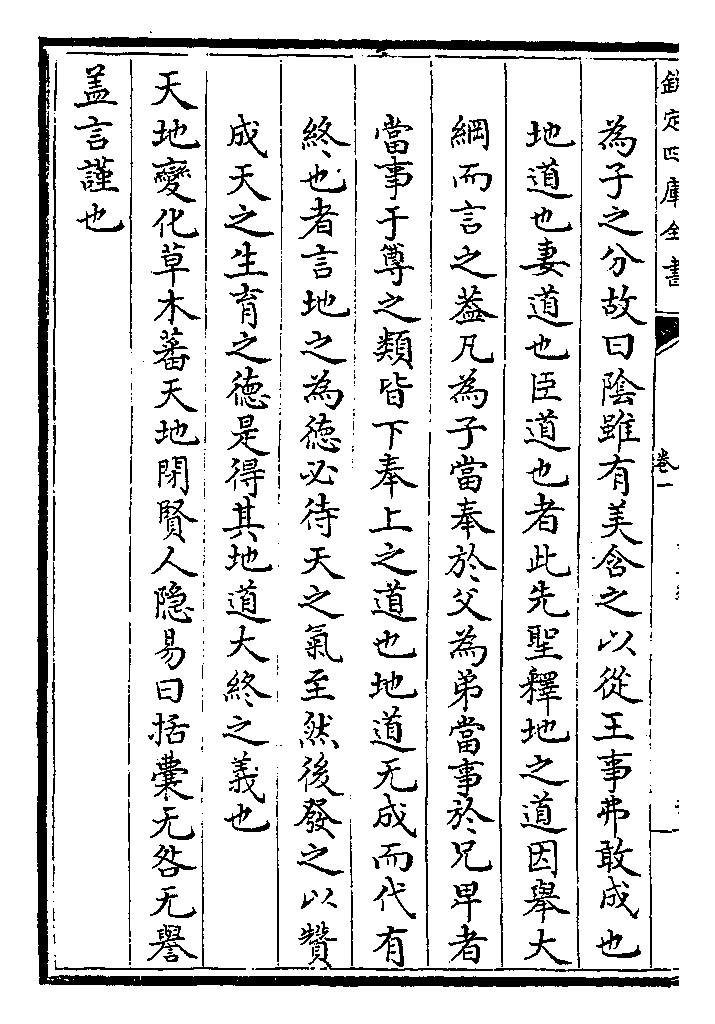 欽定四庫全書
卷一
為子之分故曰陰雖有美含之以從王事弗敢成也
地道也妻道也臣道也者此先聖釋地之道因舉大
綱而言之蓋凡為子當奉於父為弟當事於兄卑者
當事于尊之類皆下奉上之道也地道无成而代有
終也者言地之為德必待天之氣至然後發之以贊
成天之生育之德是得其地道大終之義也
天地變化草木蕃天地閉賢人隱易曰括囊无咎无譽
盖言謹也